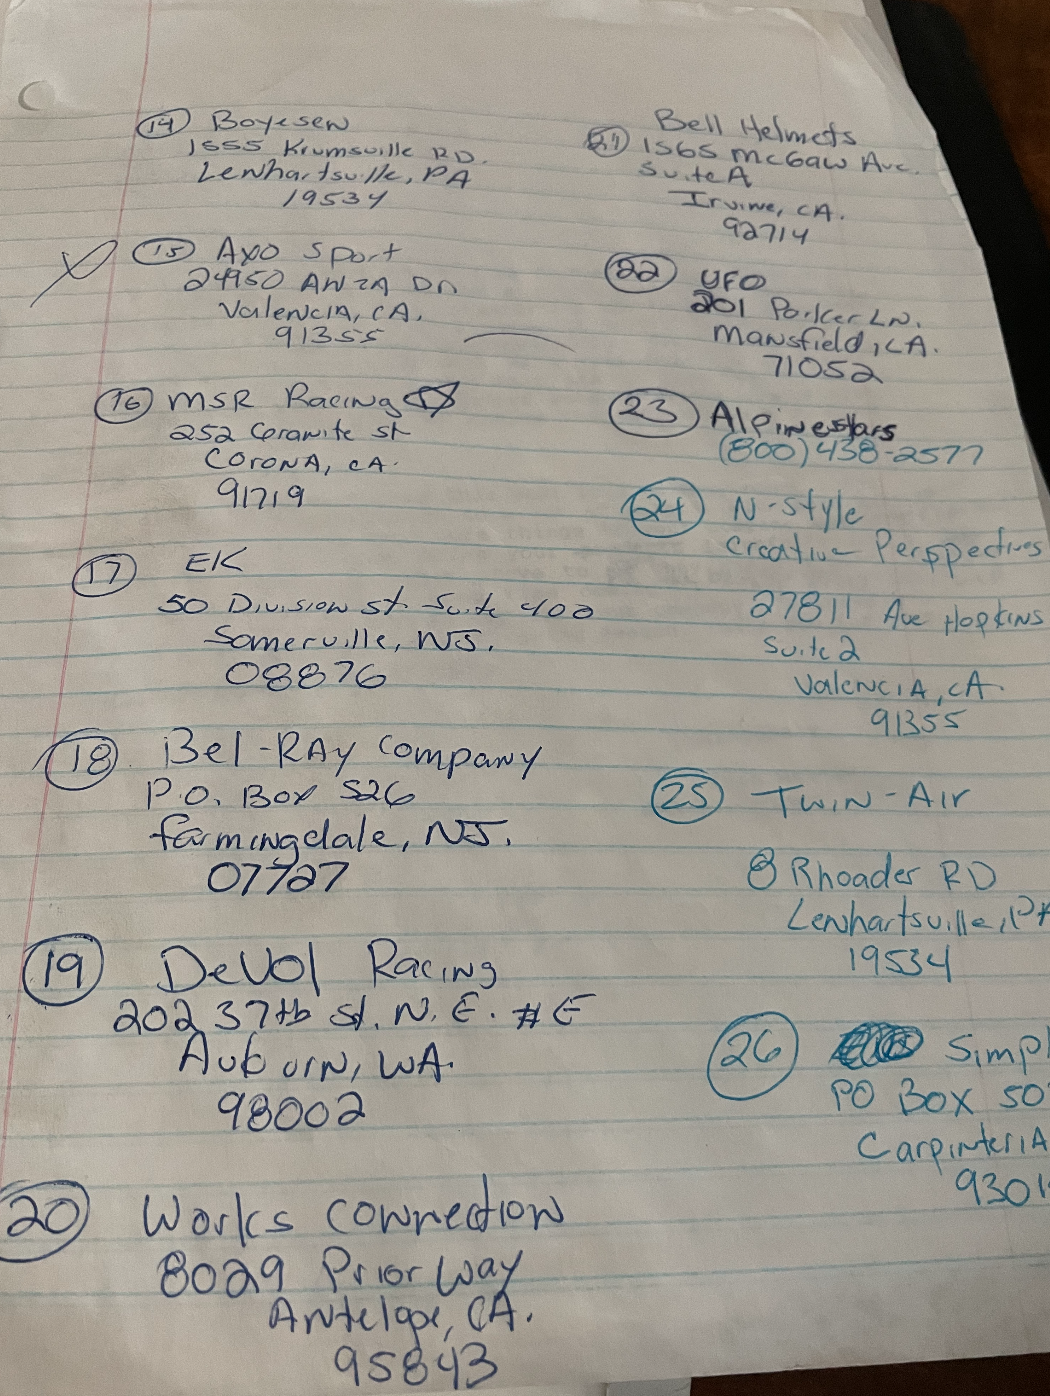 14 Boyesen
1555 Krumsville RD.
Lenhartsville, PA
19534
15 AXO Sport
24950 ANZA DR
Valencia, CA.
91355
16 MSR Racing
252 Granite st
Corona, CA.
91719
17 EK
50 Division st. Suite 400
Somerville, NJ.
08876
18 Bel-Ray Company
P.O. Box 526
farmingdale, NJ.
07727
19 DeVol Racing
202 37th St. N.E. #E
Auburn, WA.
98002
20 Works Connection
8029 Prior Way
Antelope, CA.
95843
21 Bell Helmets
1565 McGaw Ave.
Suite A
Irvine, CA.
92714
22 UFO
201 Parker LN.
Mansfield, LA.
71052
23 Alpinestars
(800) 438-2577
24 N-Style
Creative Perspectives
27811 Ave Hopkins
Suite 2
Valencia, CA.
91355
25 Twin-Air
8 Rhoader RD
Lenhartsville, PA
19534
26 Simpl
PO Box 50
Carpinteria
9301